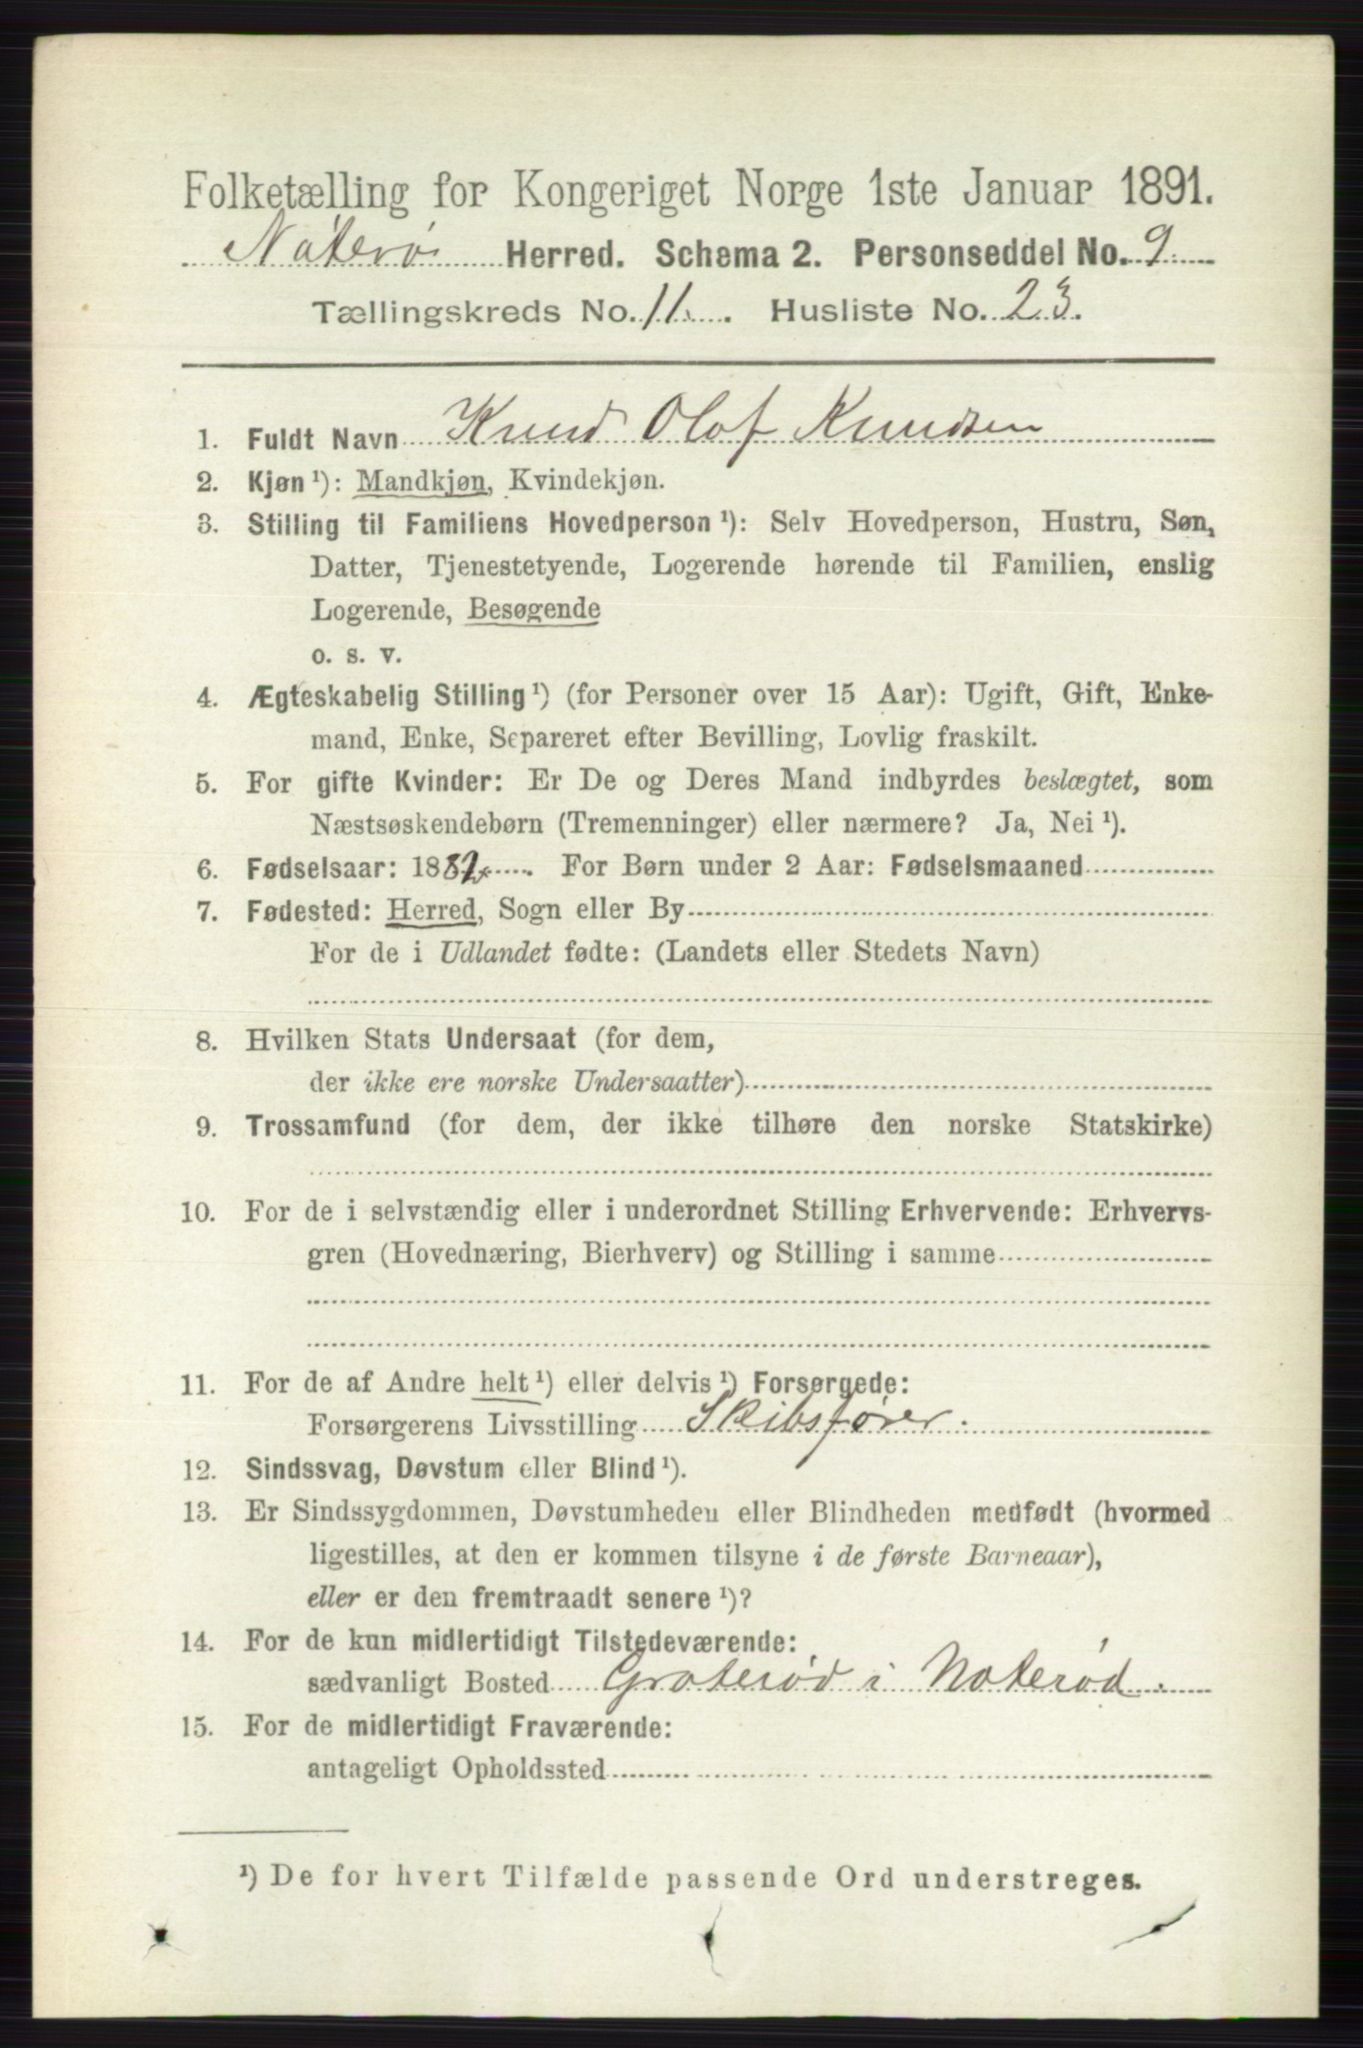 Folketælling for Kongeriget Norge 1ste Januar 1891.
Nøterø Herred. Schema 2. Personseddel No. 9
Tællingskreds No. 11. Husliste No. 23.
1. Fuldt Navn Knud Olaf Knudsen
2. Kjøn ¹): Mandkjøn, Kvindekjøn.
3. Stilling til Familiens Hovedperson ¹): Selv Hovedperson, Hustru, Søn,
Datter, Tjenestetyende, Logerende hørende til Familien, enslig
Logerende, Besøgende
o. s. v.
4. Ægteskabelig Stilling ¹) (for Personer over 15 Aar): Ugift, Gift, Enke-
mand, Enke, Separeret efter Bevilling, Lovlig fraskilt.
5. For gifte Kvinder: Er De og Deres Mand indbyrdes beslægtet, som
Næstsøskendebørn (Tremenninger) eller nærmere? Ja, Nei ¹).
6. Fødselsaar: 188 . For Børn under 2 Aar: Fødselsmaaned
7. Fødested: Herred, Sogn eller By
For de i Udlandet fødte: (Landets eller Stedets Navn)
8. Hvilken Stats Undersaat (for dem,
der ikke ere norske Undersaatter)
9. Trossamfund (for dem, der ikke tilhøre den norske Statskirke)
10. For de i selvstændig eller i underordnet Stilling Erhvervende: Erhvervs-
gren (Hovednæring, Bierhverv) og Stilling i samme
11. For de af Andre helt ¹) eller delvis ¹) Forsørgede:
Forsørgerens Livsstilling Skibsfører.
12. Sindssvag, Døvstum eller Blind ¹).
13. Er Sindssygdommen, Døvstumheden eller Blindheden medfødt (hvormed
ligestilles, at den er kommen tilsyne i de første Barneaar),
eller er den fremtraadt senere ¹)?
14. For de kun midlertidigt Tilstedeværende:
sædvanligt Bosted Grøterød i Nøterød.
15. For de midlertidigt Fraværende:
antageligt Opholdssted
¹) De for hvert Tilfælde passende Ord understreges.